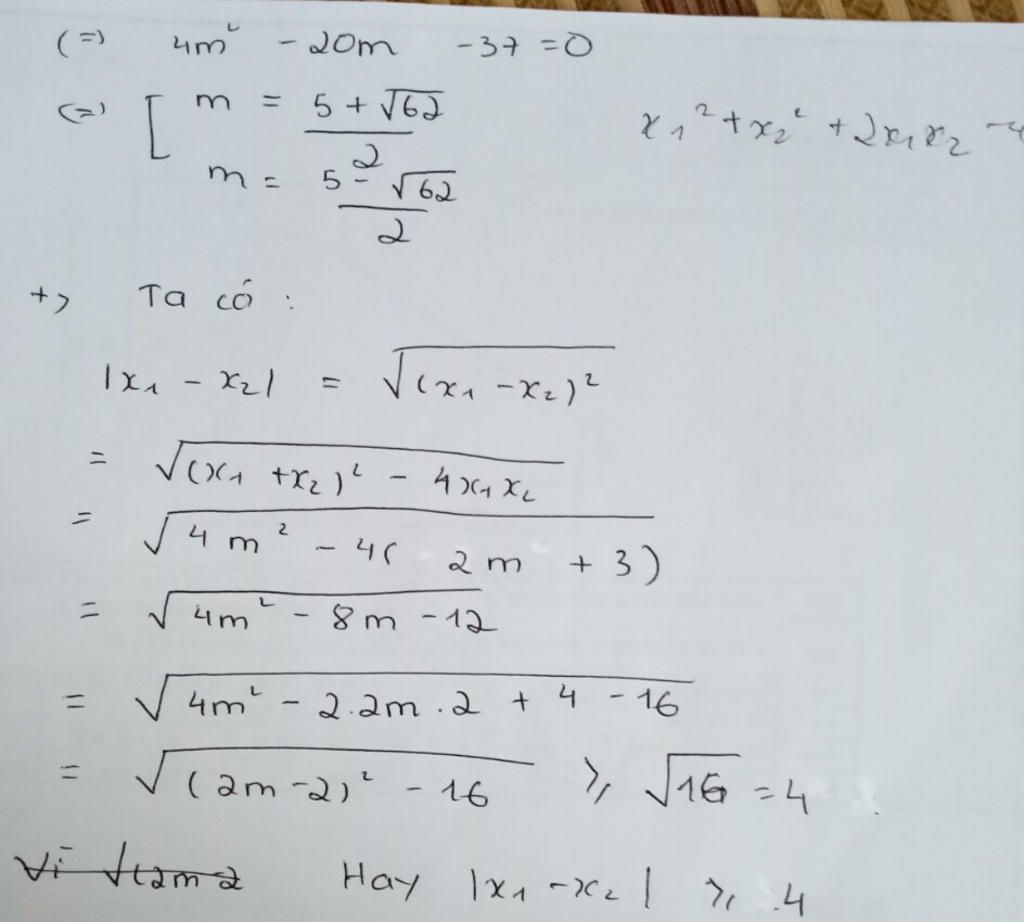 (=) 4m² - 20m - 37 = 0
(=) [ m = (5 + √62)/2
m = (5 - √62)/2
x₁² + x₂² + 2x₁x₂ -4
+> Ta có :
|x₁ - x₂| = √(x₁ - x₂)²
= √(x₁ + x₂)² - 4x₁x₂
= √4m² - 4( 2m + 3)
= √4m² - 8m - 12
= √4m² - 2.2m.2 + 4 - 16
= √(2m - 2)² - 16 ⩾ √16 = 4
Vì √(2m-2 Hay |x₁ - x₂| ⩾ 4